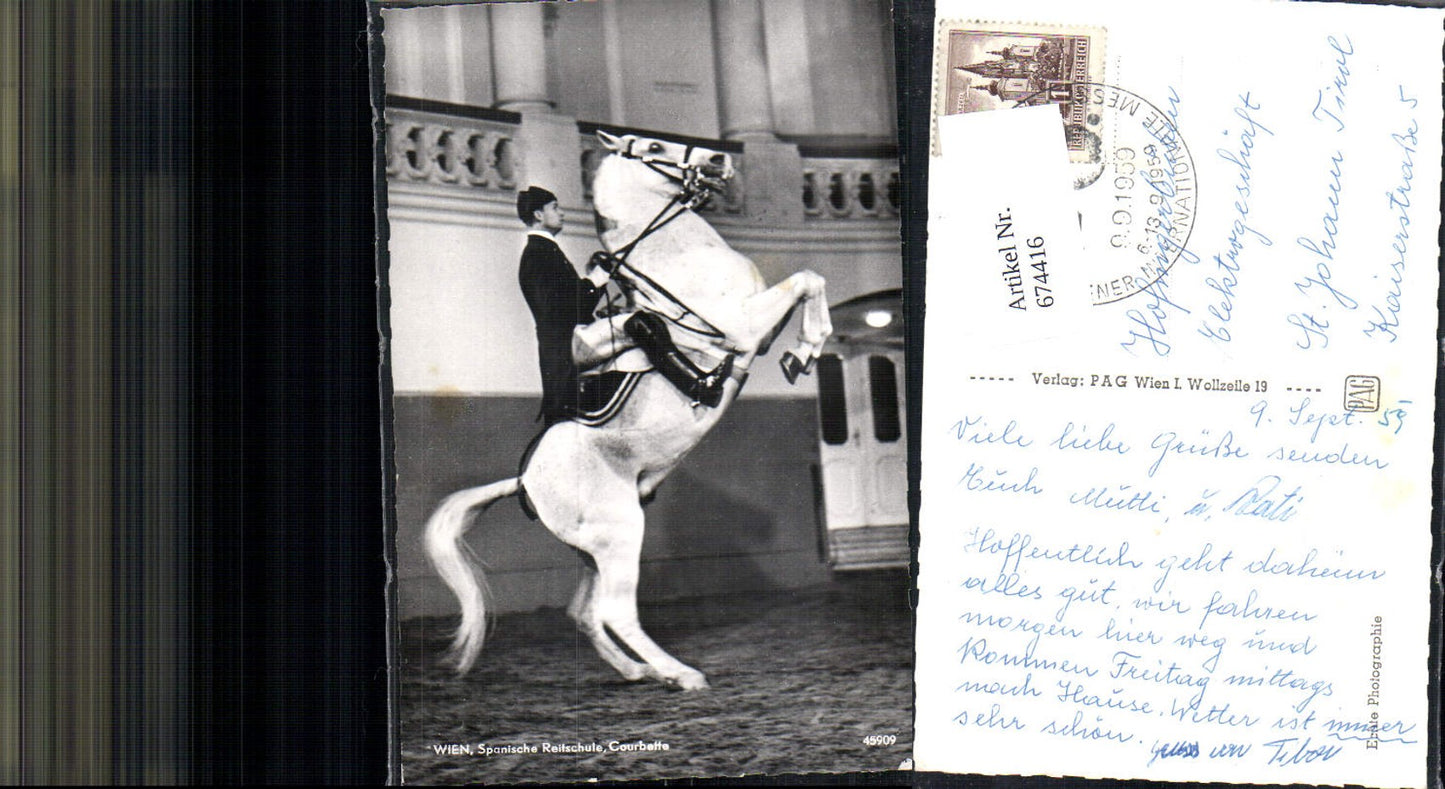 WIEN, Spanische Reitschule, Courbette
45909
REPUBLIK ÖSTERREICH
1
9.9.1959
Artikel Nr.
674416
Elektrogeschäft
St. Johann Tirol
Kaiserstraße 5
----- Verlag: PAG Wien I. Wollzeile 19 ----
PAG
9. Sept. 59
Viele liebe Grüße senden
Euch Mutti, u. Rati
Hoffentlich geht daheim
alles gut, wir fahren
morgen hier weg und
kommen Freitag mittags
nach Hause. Wetter ist immer
sehr schön.
Tibor
Echte Photographie